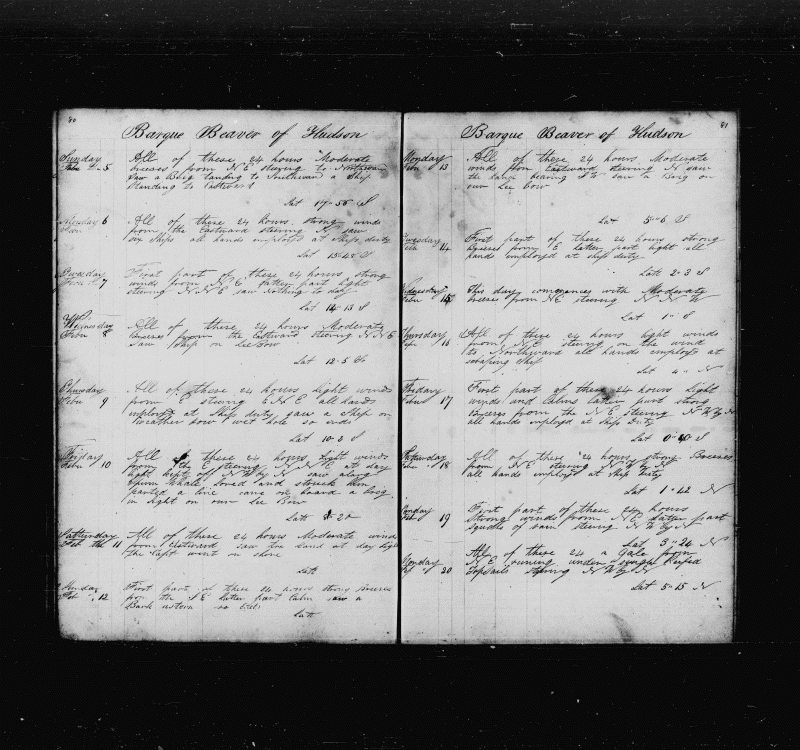 80
Barque Beaver of Hudson
Sunday All of these 24 hours Moderate
Febu 5 breezes from N E stearing to
Saw a Brig standing to Southward a Ship
standing to Eastward
Lat 17-56 S
Monday 6 All of these 24 hours strong winds
from the Eastward stearing N saw
Ships all hands employed at Ships duty
Lat 15-45 S
7 First part of these 24 hours strong
winds from N E latter part light
stearing N N E saw Nothing to day
Lat 14-13 S
8 All of these 24 hours Moderate
Breezes from the Eastward stearing N N E
Saw Ship on Lee Bow
Lat 12-5 S
Thursday All of these 24 hours light winds
Febu 9 from stearing E N E all hands
employed at Ship duty saw a Ship on
Weather bow so ends
Lat 10-2 S
Friday All of these 24 hours light winds
Febu 10 from the E stearing N N E at day
light kept off N W by N saw along
Spurm Whale loved and struck him
parted a line came on board a brig
in sight on our Lee Bow
Lat
Satturday All of these 24 hours Moderate winds
Feb the 11 from Eastward saw the Land at day light
the Last wind on shore
Lat
Sunday First part of these 24 hours strong breezes
Feb 12 from the S E latter part Calm saw a
Bark so Ends
Lat
81
Barque Beaver of Hudson
Monday All of these 24 hours Moderate
13 winds from Eastward stearing N saw
the Land bearing S W saw a Barq on
our Lee bow
Lat 5-6 S
Tuesday First part of these 24 hours strong
14 Breezes from E latter part light all
hands employed at ship duty
Lat 2-3 S
15 This day commences with Moderate
breezes from N E stearing N N W
Lat 1 S
Thursday All of these 24 hours light winds
16 from N E stearing on the wind
to Northward all hands employed at
scraping Ship
Lat
Friday First part of these 24 hours light
Febu 17 winds and Calms latter part strong
Breezes from the N E stearing N W by N
all hands employed at Ship Duty
Lat 0-40 S
Satturday All of these 24 hours strong Breezes
18 from N E stearing N W by N
all hands employed at Ship Duty
Lat 1-42 N
Sunday First part of these 24 hours
19 Strong winds from N E latter part
Squalls of rain stearing N W by N
Lat 3-24 N
Monday All of these 24 a Gale from
20 N E runing under Reefed
topsails stearing N W by N
Lat 5-15 N